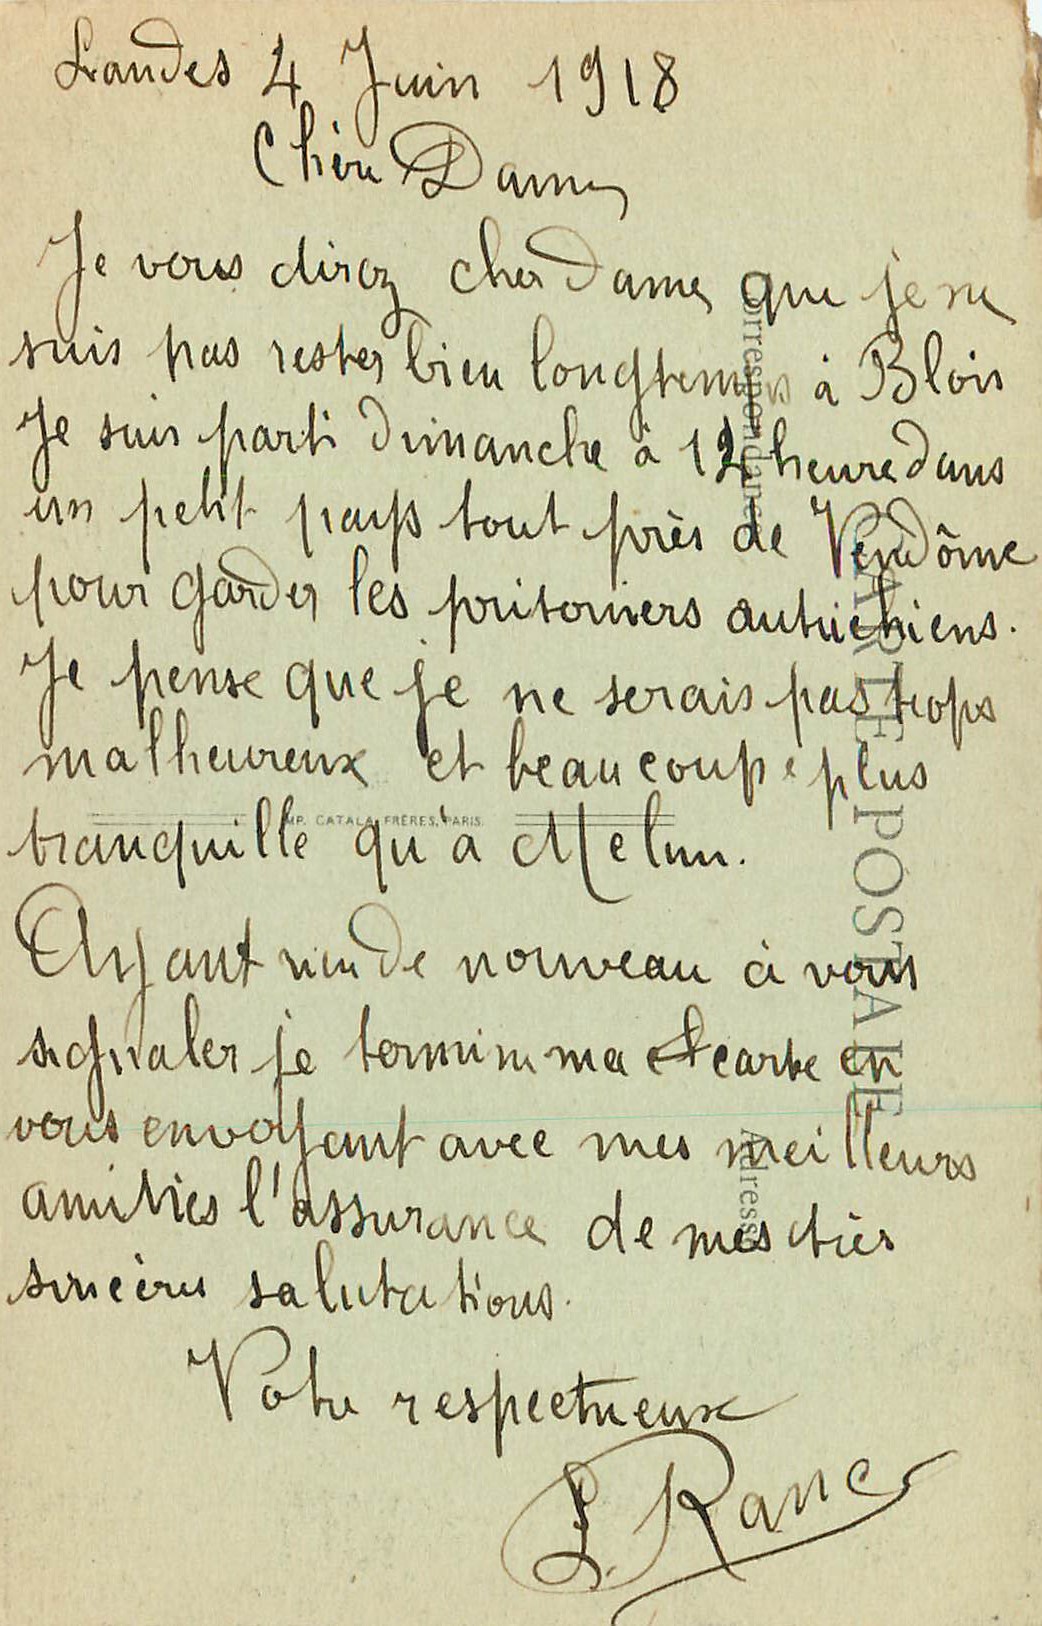 Landes 4 Juin 1918
Chère Dame
Je vous direz cher Dame que je ne
suis pas rester bien longtemps à Blois
Je suis parti Dimanche à 12 heure dans
un petit pays tout près de Vendôme
pour garder les prisoniers autrichiens.
Je pense que je ne serais pas trops
malheureux et beaucoupe plus
tranquille qu'à Melun.
Ayant rien de nouveau à vous
signaler je termine ma carte en
vous envoyant avec mes meilleurs
amitiés l'assurance de mes très
sincères salutations.
Votre respectueux
Ranc
Correspondance
CARTE POSTALE
Adresse
IMP. CATALA FRÈRES, PARIS.